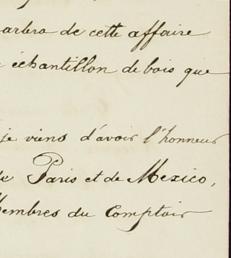 arlera de cette affaire
échantillon de bois que
je viens d'avoir l'honneur
de Paris et de Mexico,
Membres du Comptoir